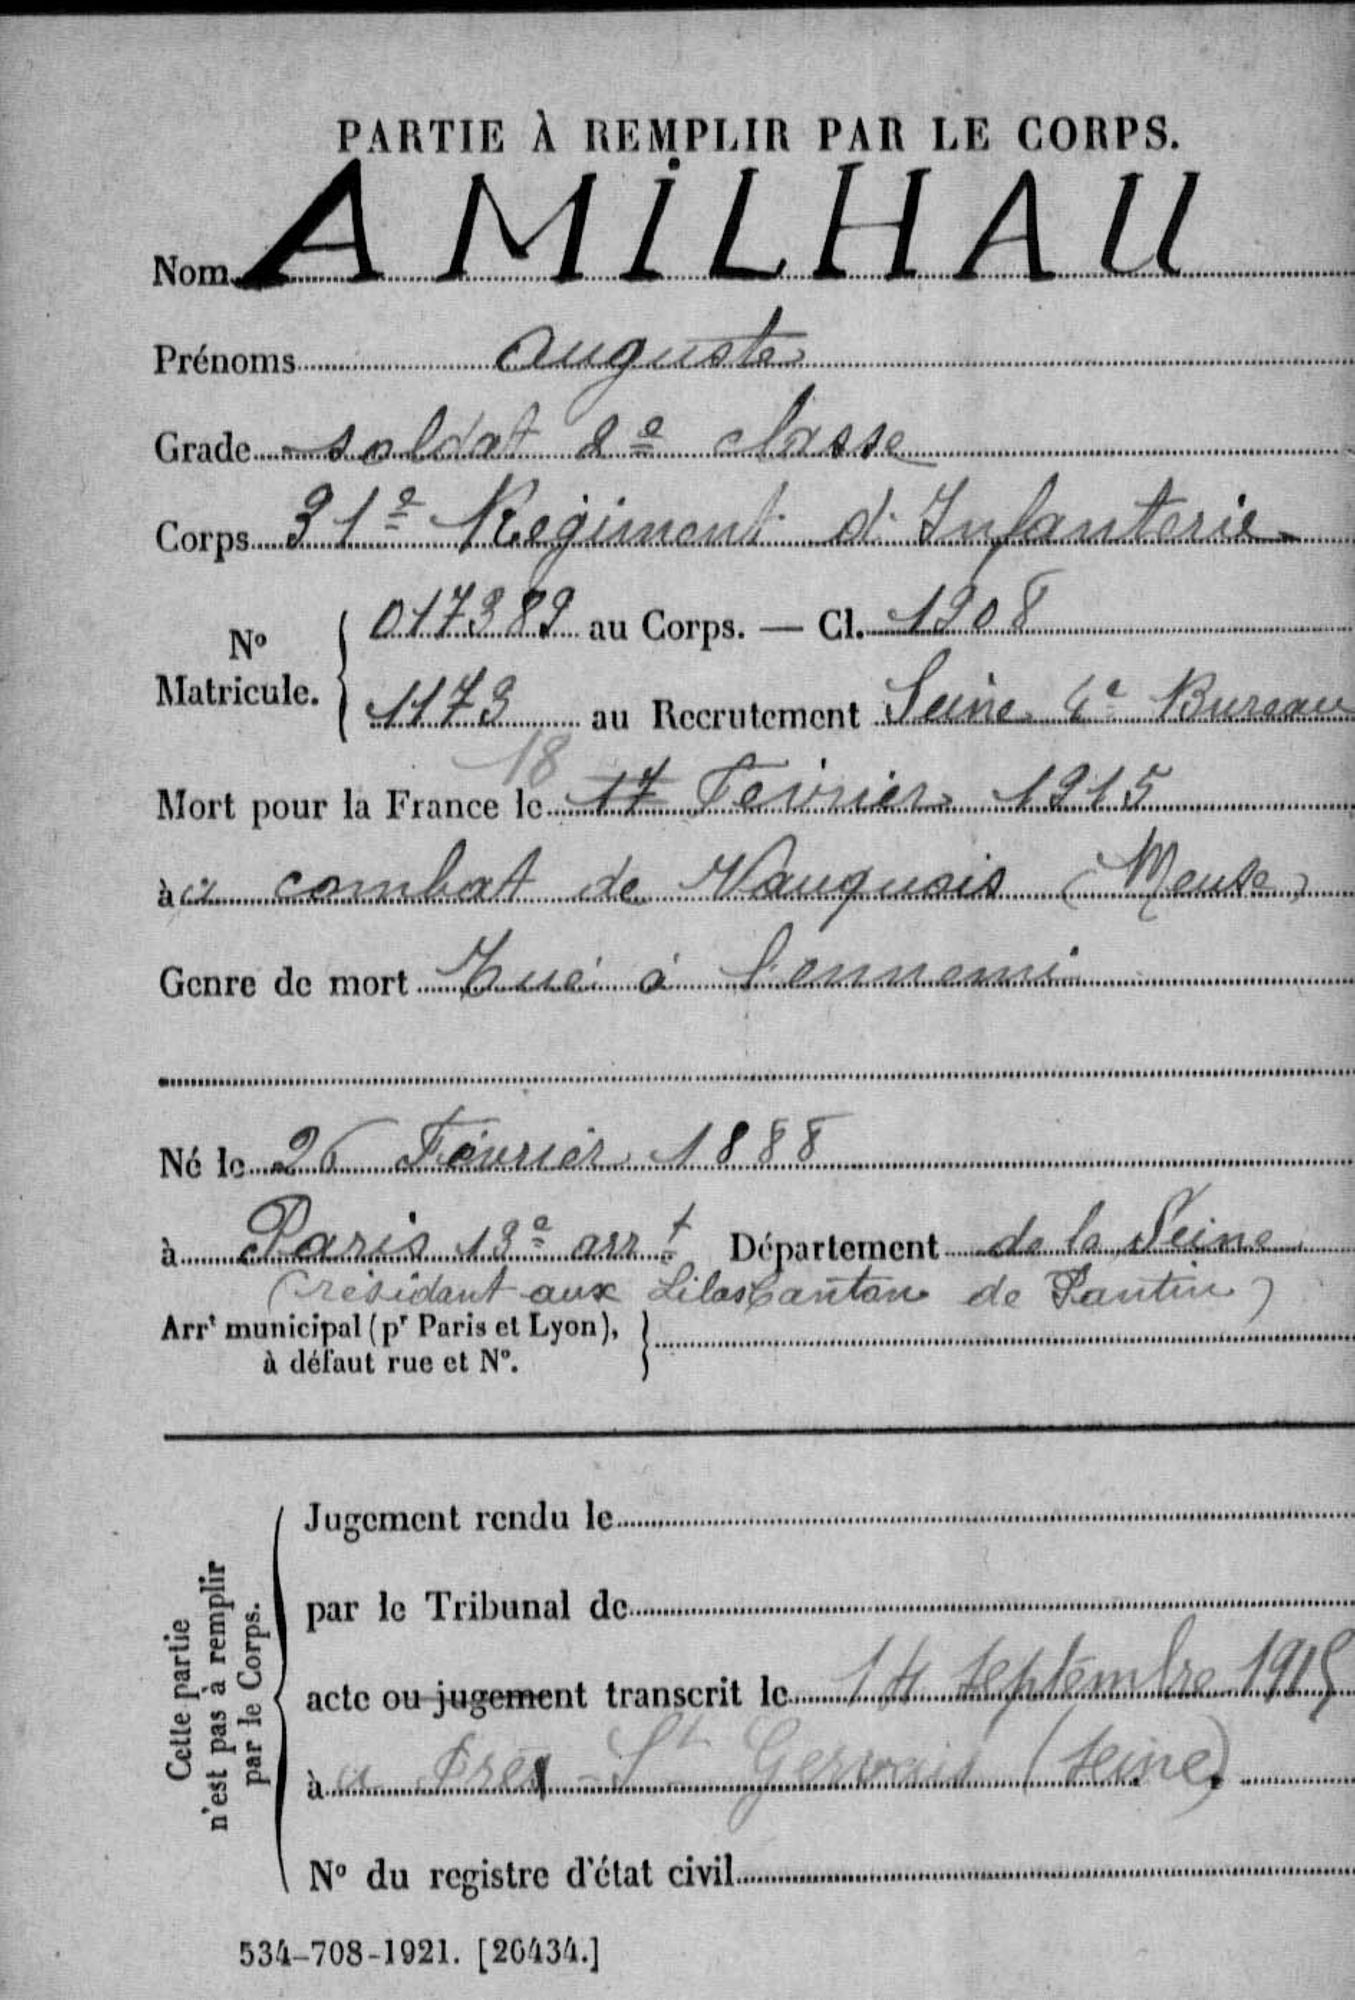 PARTIE À REMPLIR PAR LE CORPS.
Nom AMILHAU
Prénoms Auguste
Grade soldat 2e classe
Corps 31e Régiment d'Infanterie
No Matricule. { 017389 au Corps. — Cl. 1908
1173 au Recrutement Seine 4e Bureau
18
Mort pour la France le 17 Février 1915
à u combat de Vauquois (Meuse)
Genre de mort Tué à l'ennemi
Né le 26 Février 1888
à Paris 13e arrt Département de la Seine
(résidant aux Lilas Canton de Pantin)
Arrt municipal (pr Paris et Lyon), à défaut rue et No. }
Cette partie n'est pas à remplir par le Corps.
Jugement rendu le
par le Tribunal de
acte ou jugement transcrit le 14 septembre 1915
à u Pré St Gervais (Seine)
No du registre d'état civil
534-708-1921. [26434.]